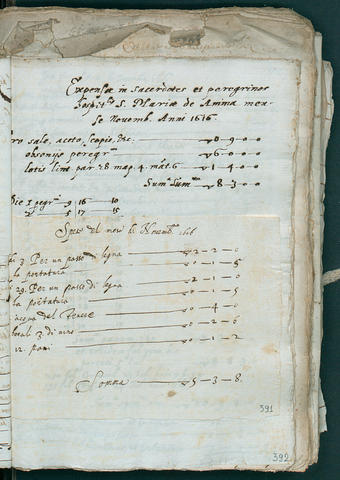 Expensæ in sacerdotes et peregrinos
hospit. S. Mariæ de Anima men-
se Novemb. Anni 1616
ro sale, aceto, scopis, &c. ▽ 0 — 9 — 0 — 0
obsonijs peregr. ▽ 6 — 0 — 0 — 0
lotis lint. par. 28 map. 4. mat. 6 ▽ 1 — 4 — 0 — 0
Sum. ▽ 8 — 3 — 0 — 0
Die 1 pegr. 9 16 — 10
2 5 17 15
Spese del mese di Novemb. 1616
3. Per un passo di legna ▽ 2 — 2 — 0
la portatura ▽ 0 — 1 — 5
29. Per un passo di legna ▽ 2 — 1 — 0
la portatura ▽ 0 — 1 — 5
acqua del Tevere ▽ 0 — 4 — 0
3. di vino ▽ 0 — 2 — 6
12. pani ▽ 0 — 1 — 2
Somma ▽ 5 — 3 — 8
391
392